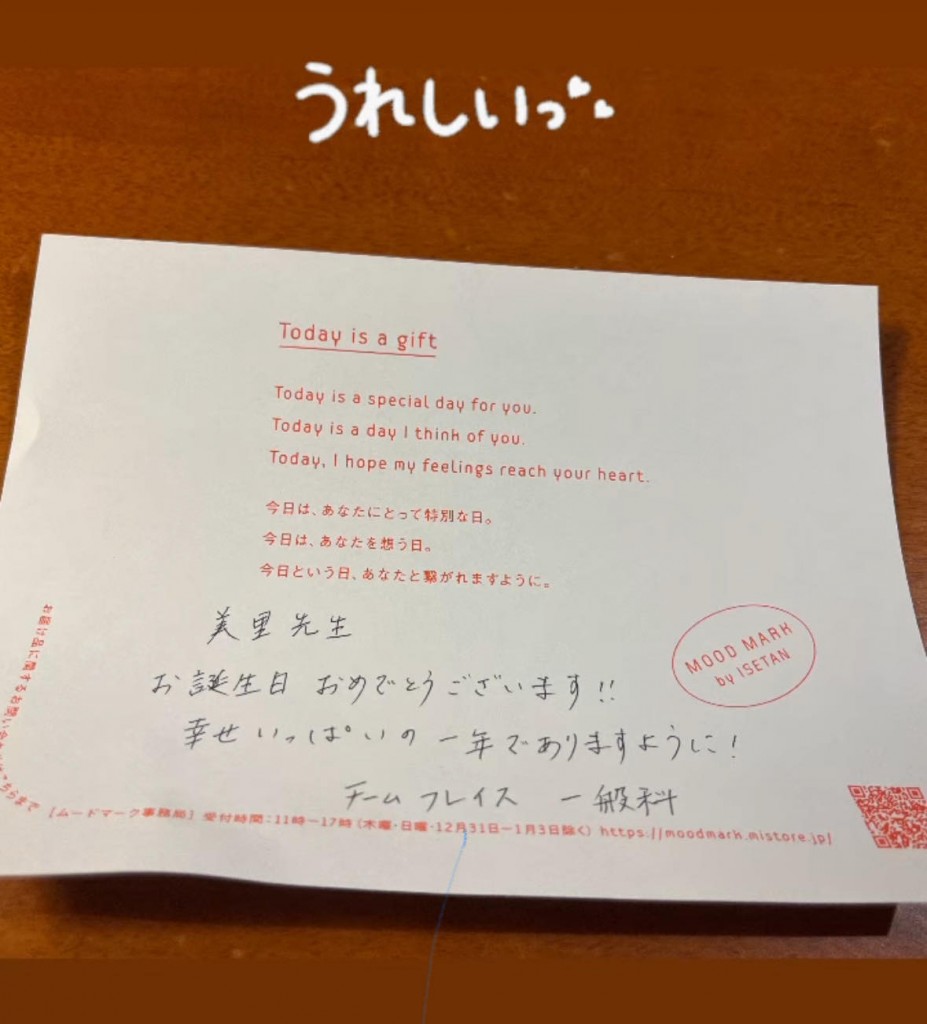 うれしいっ
Today is a gift
Today is a special day for you.
Today is a day I think of you.
Today, I hope my feelings reach your heart.
今日は、あなたにとって特別な日。
今日は、あなたを想う日。
今日という日、あなたと繋がれますように。
美里先生
お誕生日 おめでとうございます!!
幸せいっぱいの一年でありますように!
チーム フレイス 一般科
MOOD MARK
by ISETAN
お届け品に関するお問い合わせはこちらまで
[ムードマーク事務局] 受付時間:11時−17時(木曜・日曜・12月31日−1月3日除く) https://moodmark.mistore.jp/